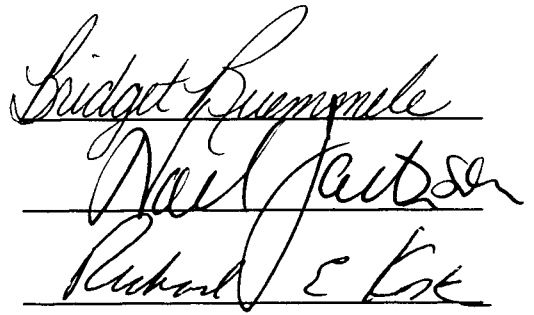 Bridget Ruemmele
Noel Jackson
Richard E Kosk